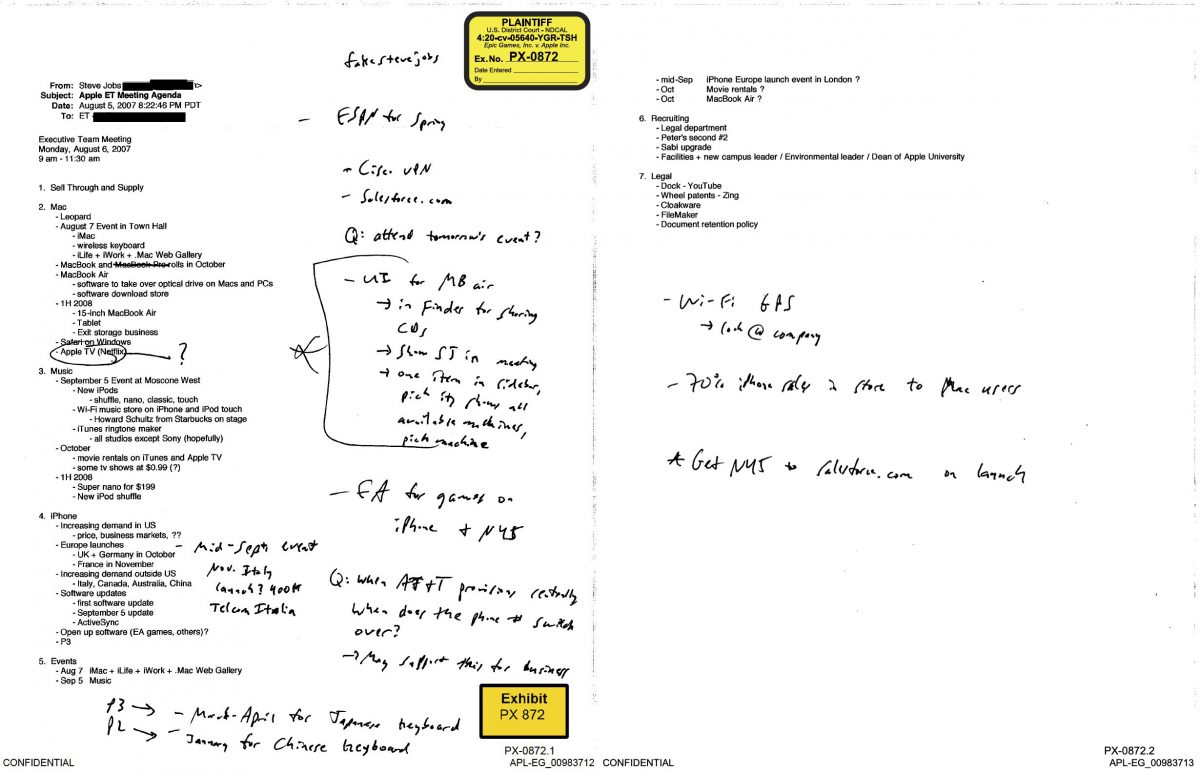 PLAINTIFF
U.S. District Court - NDCAL
4:20-cv-05640-YGR-TSH
Epic Games, Inc. v. Apple Inc.
Ex. No. PX-0872
Date Entered
By
fakestevejobs
From: Steve Jobs
Subject: Apple ET Meeting Agenda
Date: August 5, 2007 8:22:46 PM PDT
To: ET
Executive Team Meeting
Monday, August 6, 2007
9 am - 11:30 am
1. Sell Through and Supply
2. Mac
- Leopard
- August 7 Event in Town Hall
- iMac
- wireless keyboard
- iLife + iWork + .Mac Web Gallery
- MacBook and MacBook Pro rolls in October
- MacBook Air
- software to take over optical drive on Macs and PCs
- software download store
- 1H 2008
- 15-inch MacBook Air
- Tablet
- Exit storage business
- Safari on Windows
- Apple TV (Netflix) ?
3. Music
- September 5 Event at Moscone West
- New iPods
- shuffle, nano, classic, touch
- Wi-Fi music store on iPhone and iPod touch
- Howard Schultz from Starbucks on stage
- iTunes ringtone maker
- all studios except Sony (hopefully)
- October
- movie rentals on iTunes and Apple TV
- some tv shows at $0.99 (?)
- 1H 2008
- Super nano for $199
- New iPod shuffle
4. iPhone
- Increasing demand in US
- price, business markets, ??
- Europe launches
- UK + Germany in October
- France in November
- Increasing demand outside US
- Italy, Canada, Australia, China
- Software updates
- first software update
- September 5 update
- ActiveSync
- Open up software (EA games, others)?
- P3
5. Events
- Aug 7 iMac + iLife + iWork + .Mac Web Gallery
- Sep 5 Music
- ESPN for Spring
- Cisco VPN
- Salesforce.com
Q: attend tomorrow's event?
- UI for MB air
→ in Finder for sharing
CDs
→ Show SJ in meeting
→ one item in sidebar,
pick it, shows all
available machines,
pick machine
- EA for games on
iPhone + N45
- Mid-Sept event
Nov. Italy
launch? 400M
Telecom Italia
Q: when AT+T provisions
When does the phone # switch
over?
→ May support this for business
P3 → - March-April for Japanese keyboard
P2 → - January for Chinese keyboard
Exhibit
PX 872
PX-0872.1
CONFIDENTIAL
APL-EG_00983712
- mid-Sep iPhone Europe launch event in London ?
- Oct Movie rentals ?
- Oct MacBook Air ?
6. Recruiting
- Legal department
- Peter's second #2
- Sabi upgrade
- Facilities + new campus leader / Environmental leader / Dean of Apple University
7. Legal
- Dock - YouTube
- Wheel patents - Zing
- Cloakware
- FileMaker
- Document retention policy
- Wi-Fi GPS
→ look @ company
- 70% iPhone sales in store to Mac users
* Get N45 to salesforce.com on launch
PX-0872.2
CONFIDENTIAL
APL-EG_00983713